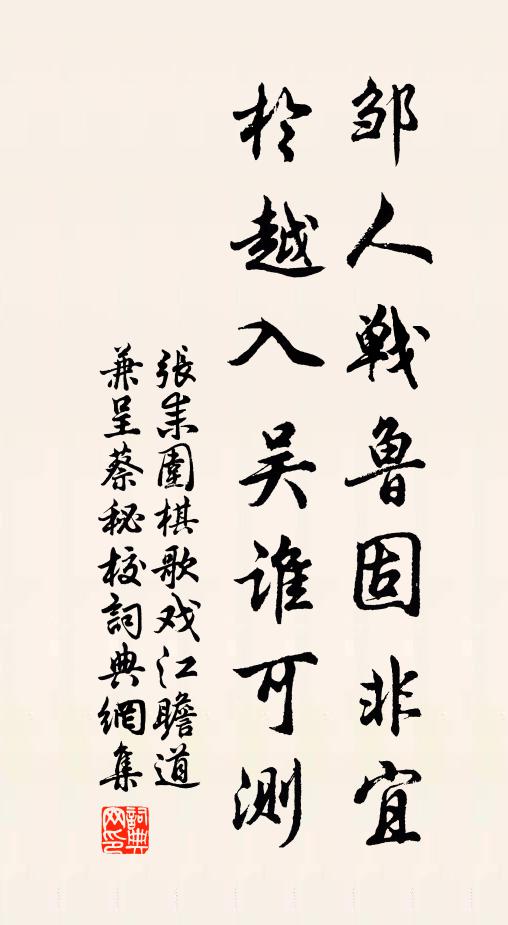 邹人戦鲁固非宜
於越入吴谁可测
張耒圍棋歌戏江瞻道
兼呈蔡秘校詞典網集
詞典网印